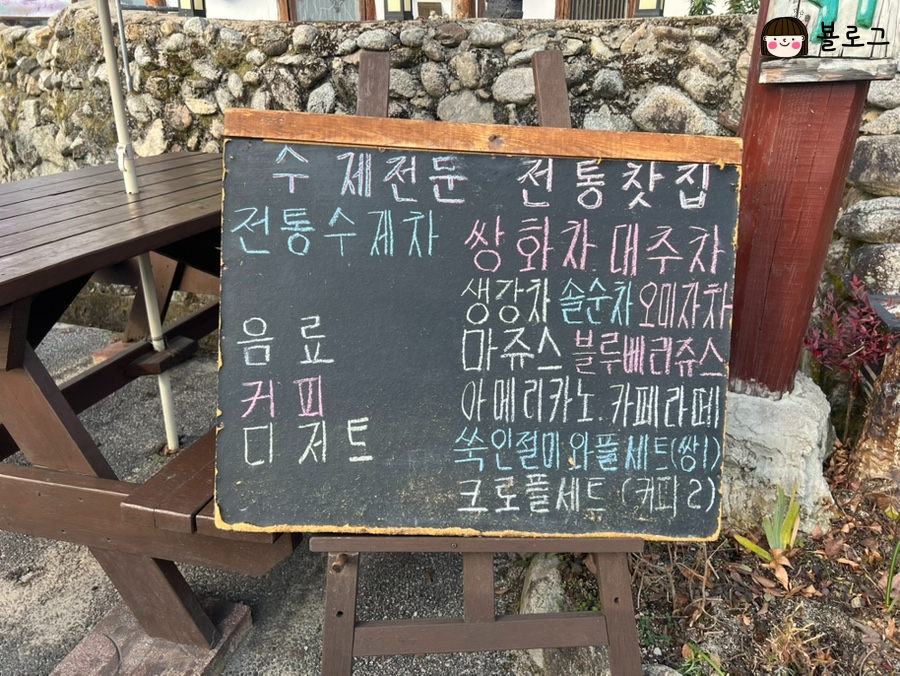 블로그
수제전문 전통찻집
전통수제차 쌍화차 대추차
생강차 솔순차 오미자차
음료 마쥬스 블루베리쥬스
커피 아메리카노. 카페라떼
디저트 쑥인절미 와플세트(쌍1)
크로플세트 (커피2)